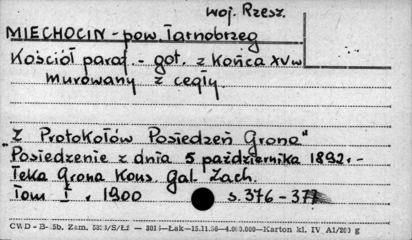 woj. Rzesz.
MIECHOCIN - pow. Tarnobrzeg
Kościół paraf. - got. z końca XV w
murowany z cegły.
„Z Protokołów Posiedzeń Grona"
Posiedzenie z dnia 5 października 1892. -
Teka Grona Kons. Gal. Zach.
Tom I. 1900 s. 376 - 377
CWD - B- 5b. Zam. /S/Łż — 301 — Łak — 15.11.56 — 4.000.000 — Karton kl. IV A1/200 g